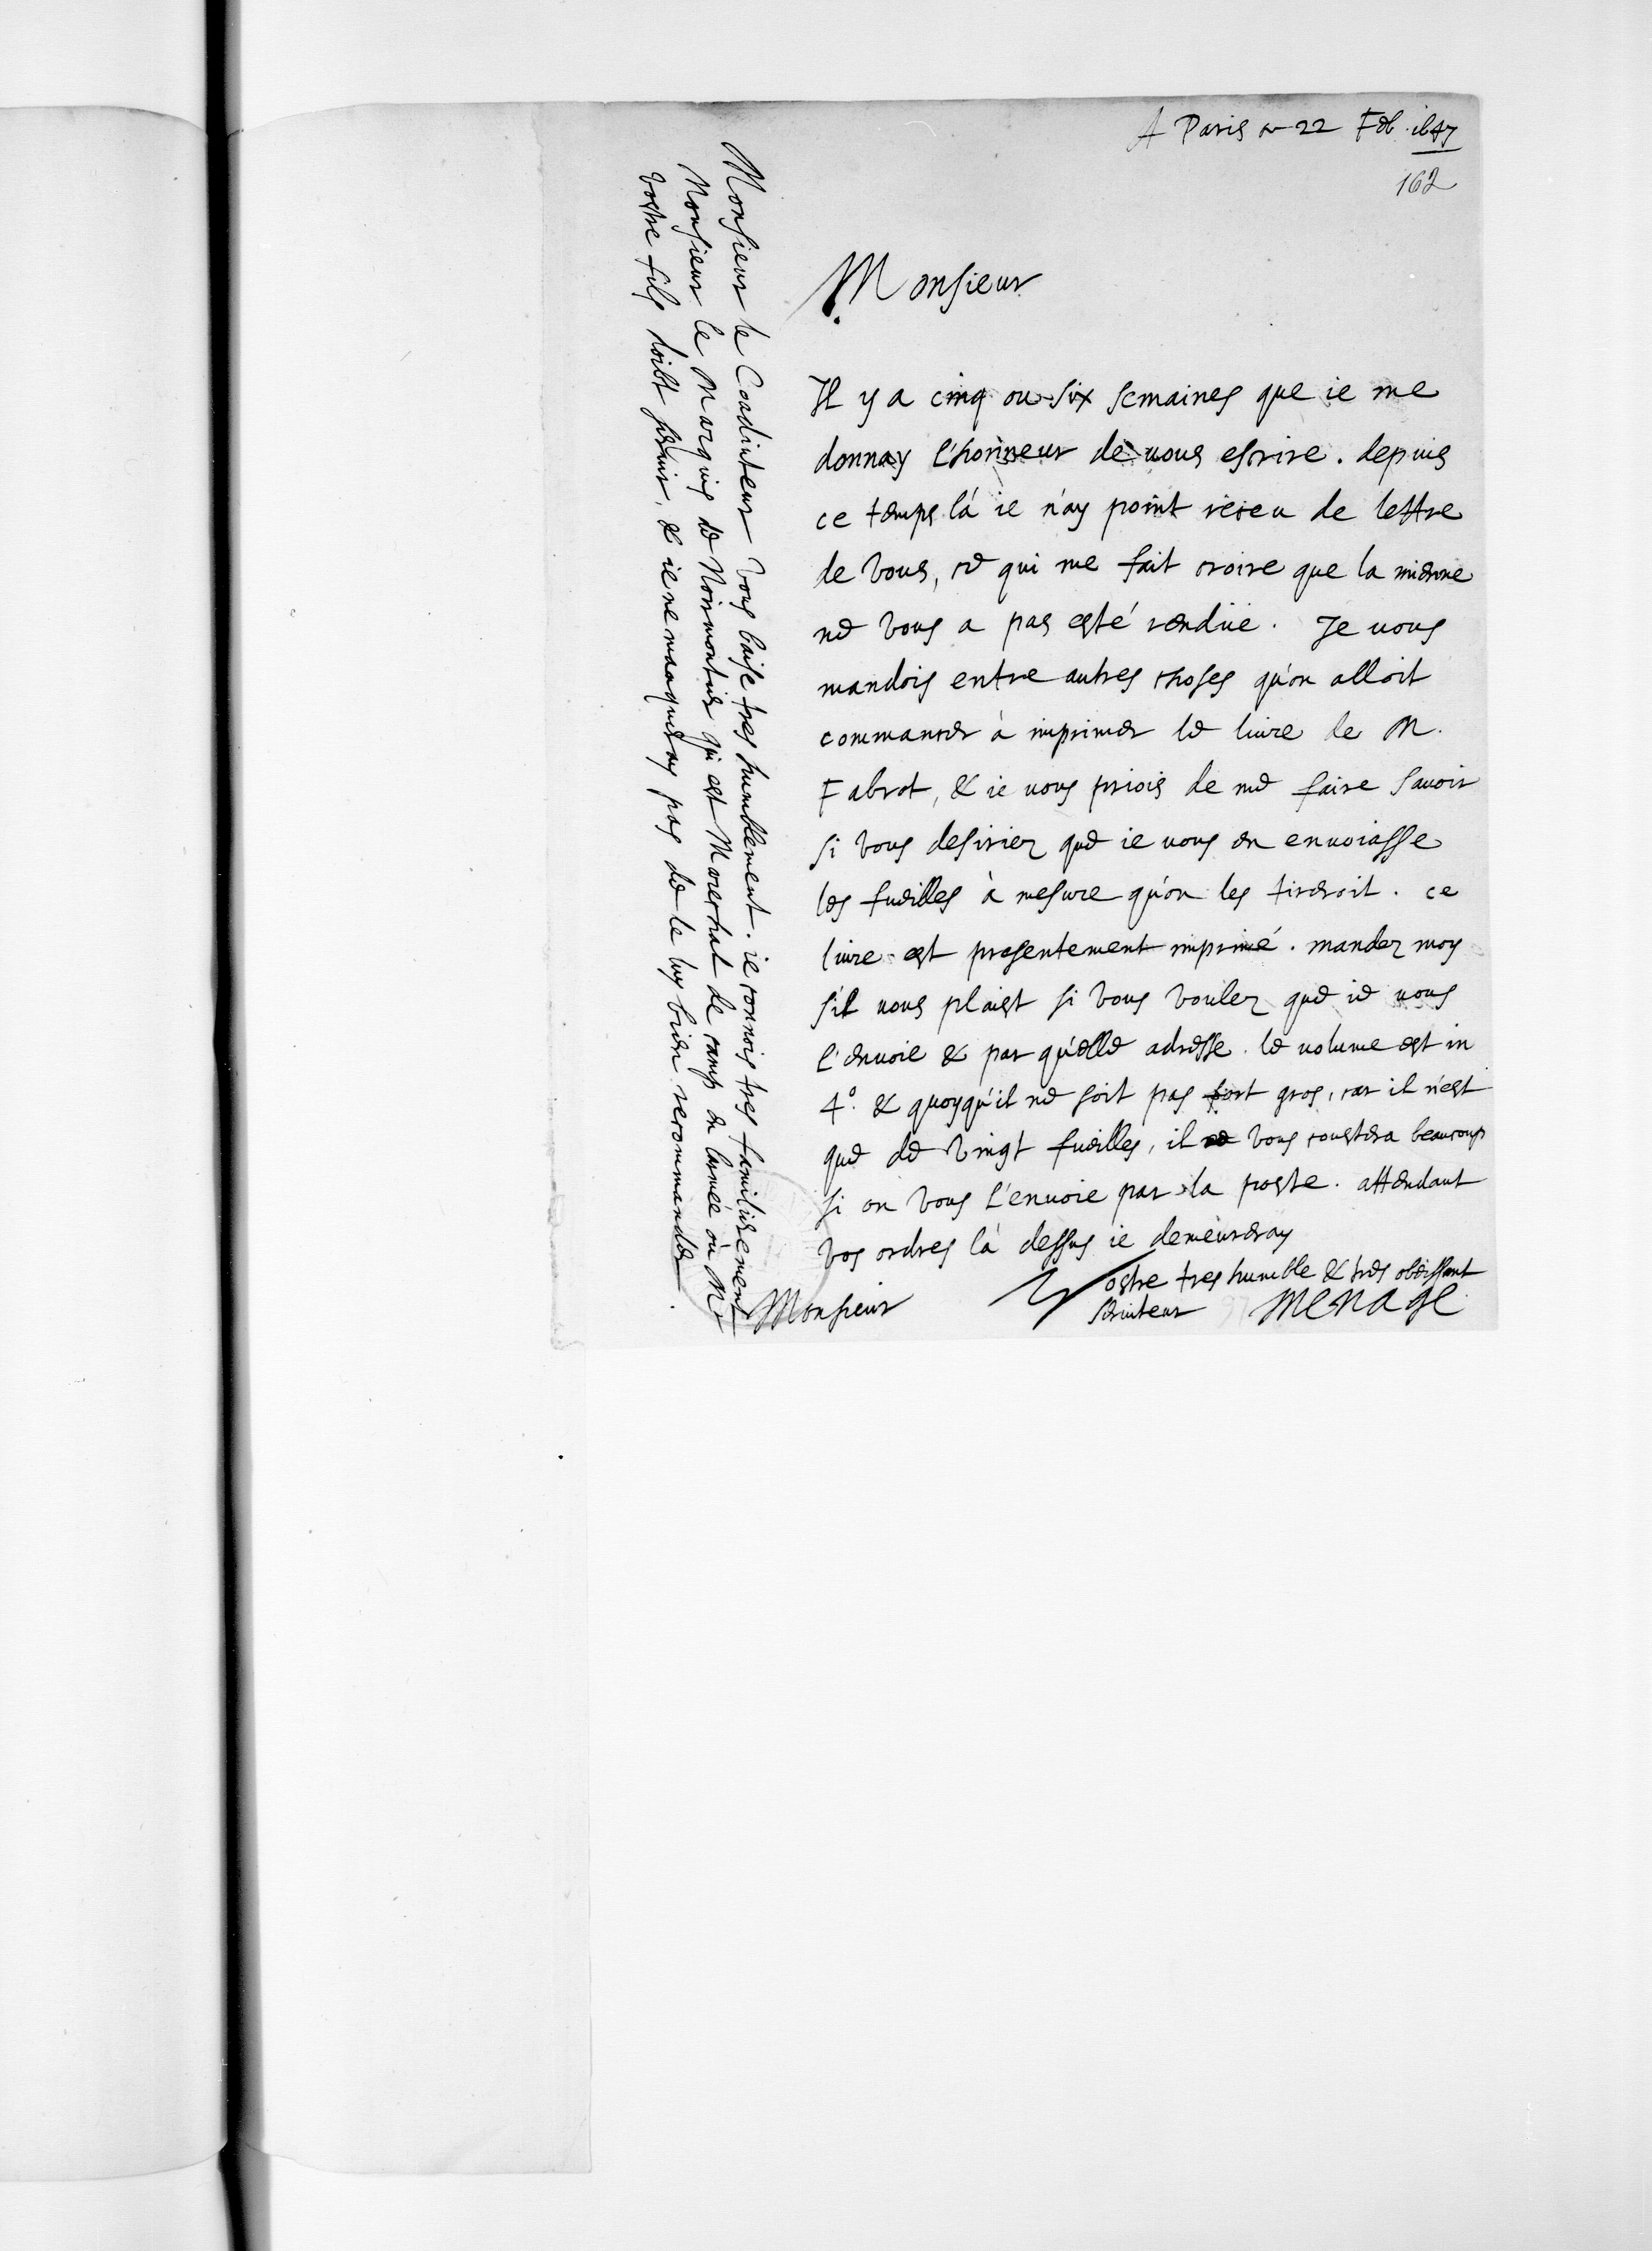 A Paris ce 22 Feb. 1647
162
Monsieur
Il y a cinq ou six semaines que ie me
donnay l'honneur de vous escrire. depuis
ce temps là ie n'ay point receu de lettre
de vous, ce qui me fait croire que la mienne
ne vous a pas esté rendüe. Je vous
mandois entre autres choses qu'on alloit
commancer à imprimer le livre de M.
Fabrot, & ie vous priois de me faire savoir
si vous desiriez que ie vous en envoiasse
les fueilles à mesure qu'on les tireroit. ce
livre est presentement imprimé. mandez moy
s'il vous plaist si vous voulez que ie vous
l'envoie & par qu'elle adresse. le volume est in
4º. & quoyqu'il ne soit pas fort gros, car il n'est
que de vingt fueilles, il vous coustera beaucoup
si on vous l'envoie par la poste. attendant
vos ordres là dessus ie demeureray
Monsieur
Vostre tres humble & tres obeissant
serviteur MENAGE
Monsieur le Coadiuteur vous baise tres humblement. ie connois tres familierement
Monsieur le Marquis de Noirmontier qui est Mareschal de camp en larmée où Mr
vostre fils doibt servir, & ie ne manqueray pas de le luy bien recommander.